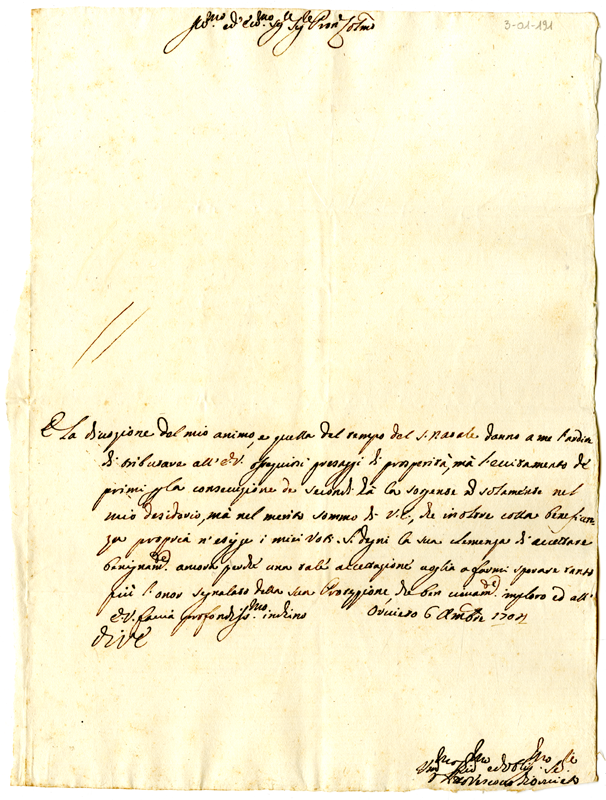 Ill.mo ed Ecc.mo Sig.re Sig.re Pron. Colmo
3-01-191
E La divozione del mio animo, e quella del tempo del S. Natale danno a me l'ardire
di tributare all' E.V. ossequiosi presaggi di prosperità, mà l'eccitamento de
primi la consecuzione de secondi hà la sorgente nò solamente nel
mio desiderio, mà nel merito sommo di V.E., che inoltre colla beneficen
za propria n'esigge i miei voti. Si degni la sua clemenza di accettare
benignam.te ancora perché una tale accettazione voglia a farmi sperare tanto
più l'onor segnalato della sua Protezzione che ben vivam.te imploro ed all'
E.V. faccio profondiss.mo inchino Orvieto 6 Xmbre 1704
Di V.E.